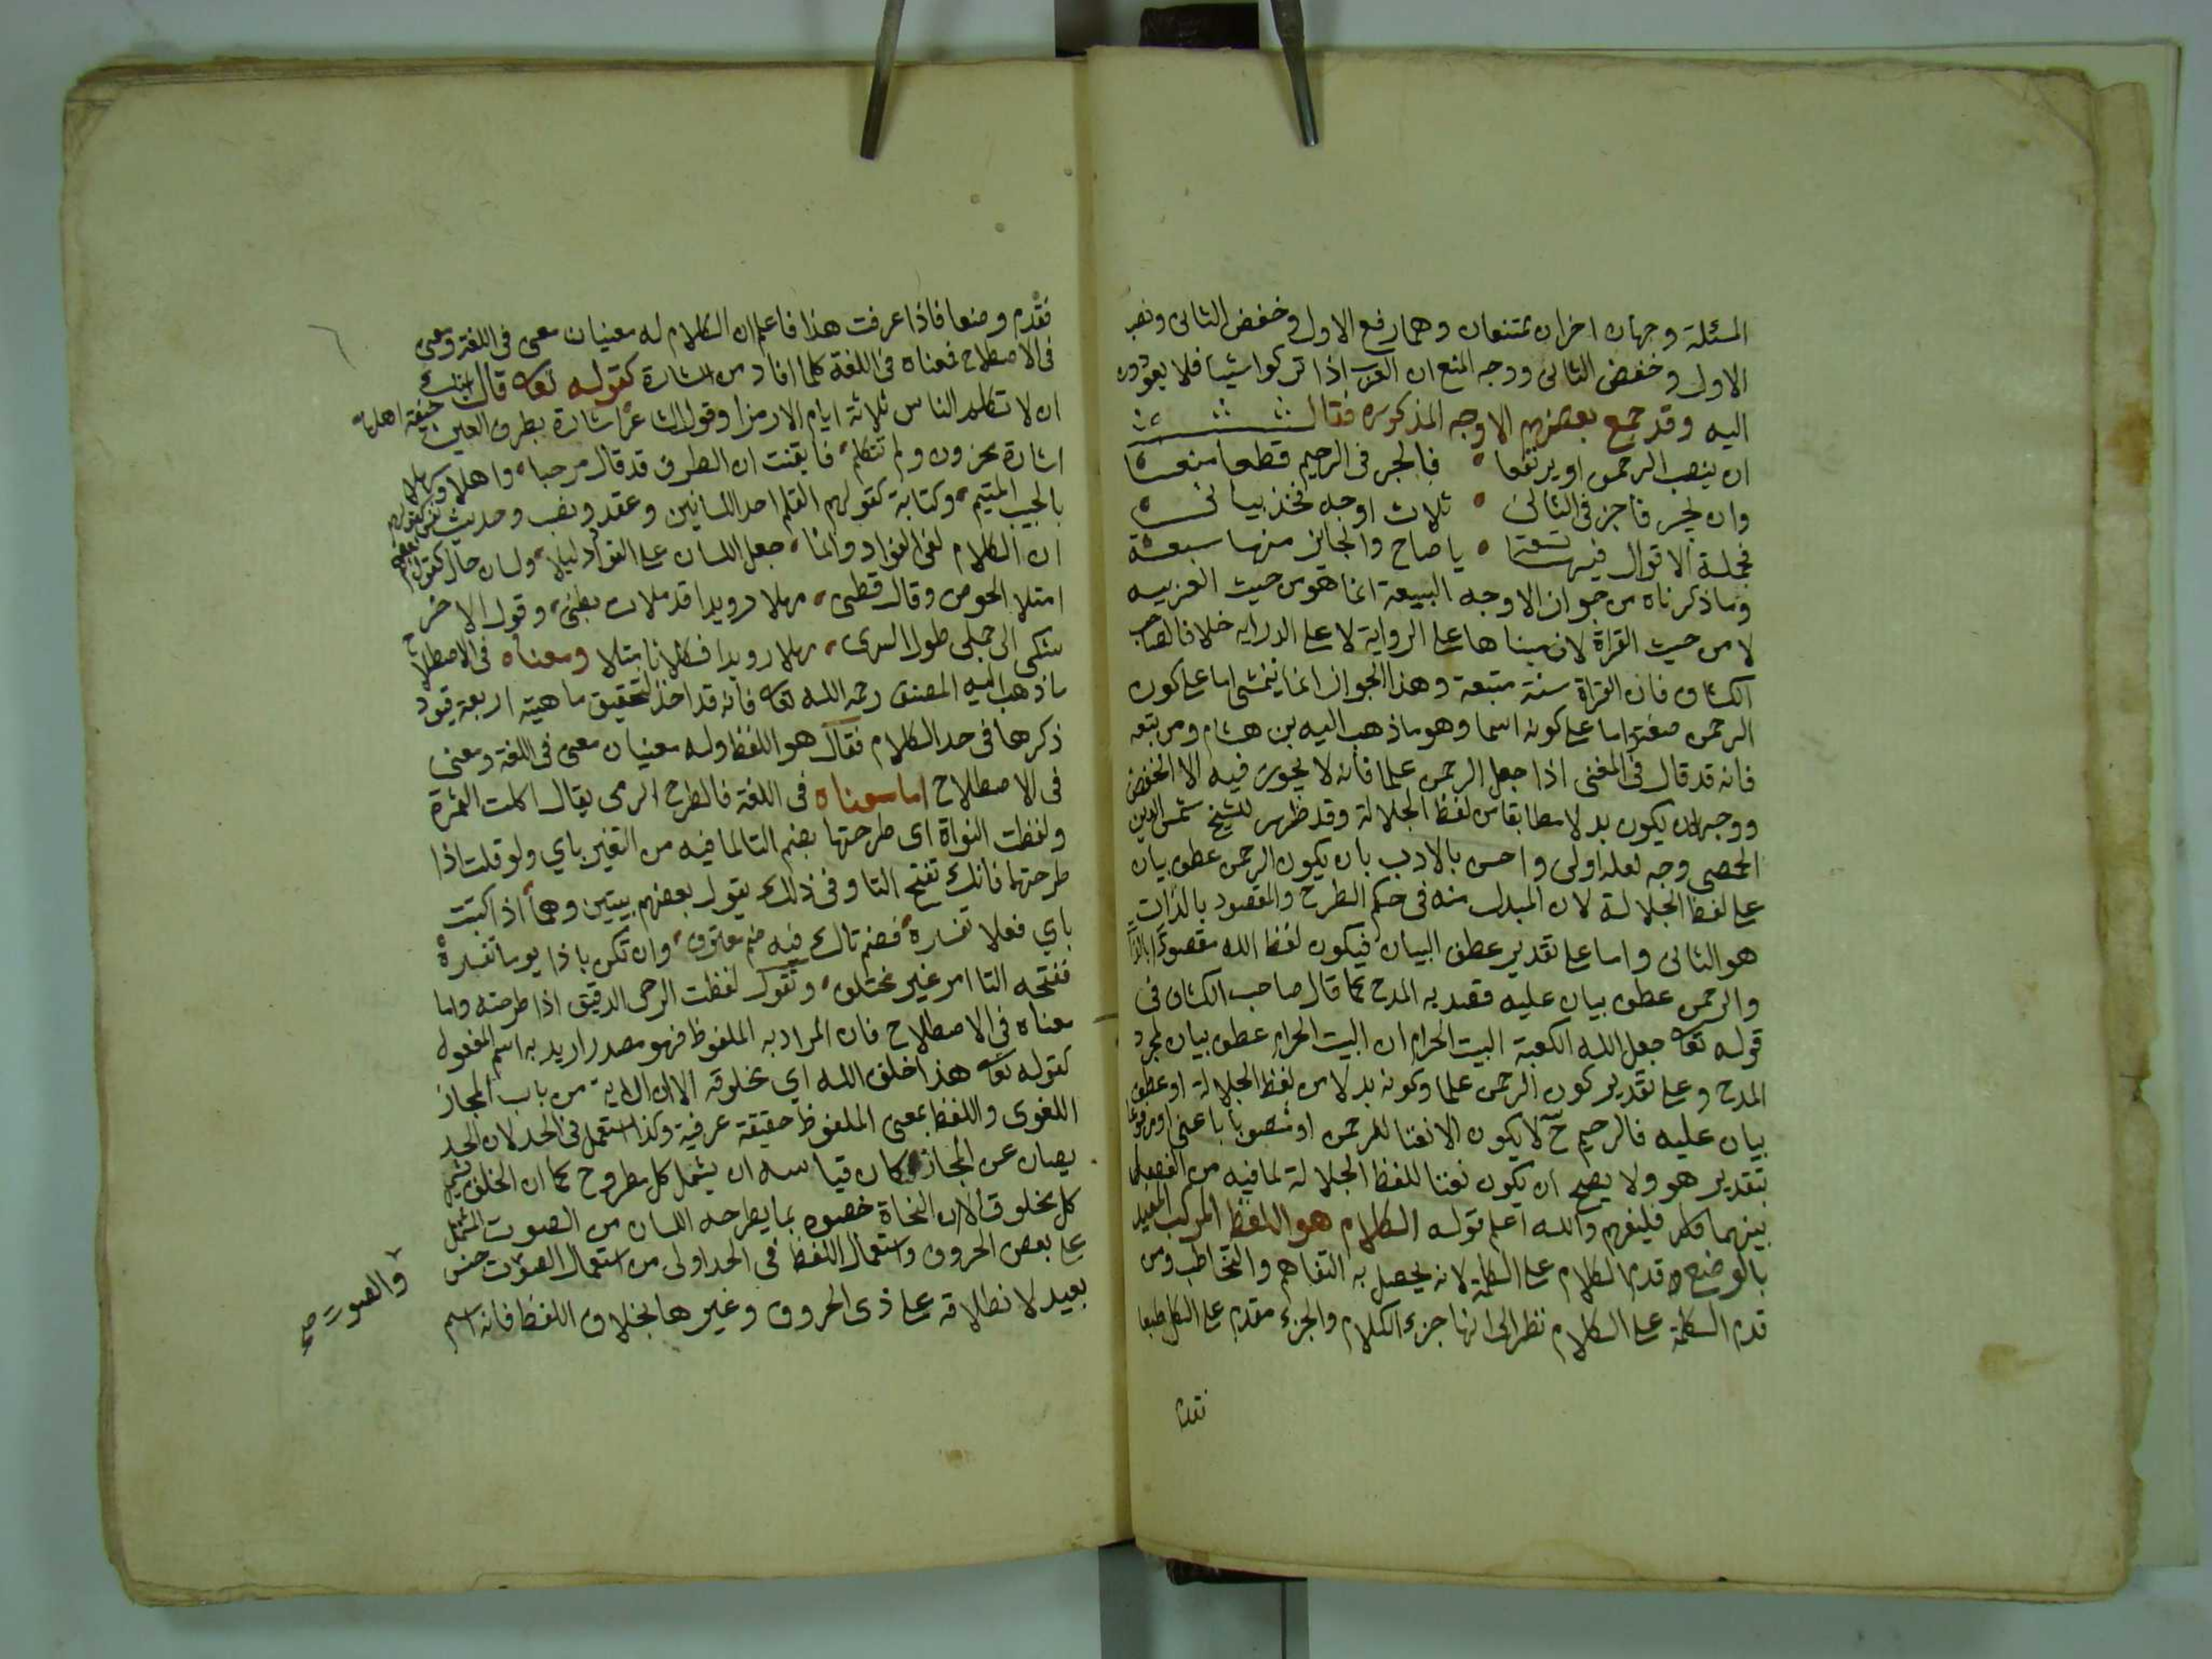 المسئلة وجهان اخران ممتنعان وهما رفع الاول وخفض الثانى ونصب
الاول وخفض الثانى ووجه المنع ان العرب اذا تركوا شيئا فلا يعودون
اليه وقد جمع بعضهم الاوجه المذكوره فقال
ان ينصب الرحمن او يرتفعا فالجر فى الرحيم قطعا منعا
وان يجر فاجز فى الثانى ثلاث اوجه فخذ بيانى
فجملة الاقوال فيها تسعة يا صاح والجايز منها سبعة
وما ذكرناه من جواز الاوجه السبعة انما هو من حيث العربيه
لا من حيث القراة لان مبناها على الرواية لا على الدرايه خلافا لصاحب
الكشاف فان القراة سنة متبعة وهذا الجواز انما يتمشى اما على كون
الرحمن صفة واما على كونه اسما وهو ما ذهب اليه بن هشام ومن تبعه
فانه قد قال فى المغنى اذا جعل الرحمن علما فانه لا يجوز فيه الا الخفض
ووجب ان يكون بدلا مطابقا من لفظ الجلالة وقد ظهر للشيخ شمس الدين
الحمصى وجه لعله اولى واحسن بالادب بان يكون الرحمن عطف بيان
على لفظ الجلالة لان المبدل منه فى حكم الطرح والمقصود بالذات
هو الثانى واما على تقدير عطف البيان فيكون لفظ الله مقصودا بالذات
والرحمن عطف بيان عليه قصد به المدح كما قال صاحب الكشاف فى
قوله تعا جعل الله الكعبة البيت الحرام ان البيت الحرام عطف بيان لمجرد
المدح وعلى تقدير كون الرحمن علما وكونه بدلا من لفظ الجلالة او عطف
بيان عليه فالرحيم ح لا يكون الا نعتا للرحمن او منصوبا باعنى او مرفوعا
بتقدير هو ولا يصح ان يكون نعتا للفظ الجلالة لما فيه من الفصل
بينهما فليفهم والله اعلم قوله الكلام هو اللفظ المركب المفيد
بالوضع وقدم الكلام على الكلمة لانه يحصل به التفاهم والتخاطب ومن
قدم الكلمة على الكلام نظر الى انها جزء الكلام والجزء مقدم على الكل طبعا
فقدم
فقدم وضعا فاذا عرفت هذا فاعلم ان الكلام له معنيان معنى فى اللغة ومعنى
فى الاصطلاح فمعناه فى اللغة كلما افاد من اشارة كقوله تعا قال ايتك
ان لا تكلم الناس ثلاثة ايام الا رمزا وقول الشاعر اشارة بطرف العين خيفة اهلها
اشارة محزون ولم تتكلم فايقنت ان الطرف قد قال مرحبا واهلا وسهلا
بالحبيب المتيم وكتابة كقولهم القلم احد اللسانين وعقد ونصب وحديث نفس كقولهم
ان الكلام لفى الفؤاد وانما جعل اللسان على الفؤاد دليلا ولسان حال كقول بعضهم
امتلا الحوض وقال قطنى مهلا رويدا قد ملات بطنى وقول الاخر
شكى الى جملى طول السرى مهلا رويدا فكلانا مبتلا ومعناه فى الاصطلاح
ما ذهب اليه المصنف رحمه الله تعا فانه قد اخذ لتحقيق ماهيته اربعة قيود
ذكرها فى حد الكلام فقال هو اللفظ وله معنيان معنى فى اللغة ومعنى
فى الاصطلاح اما معناه فى اللغة فالطرح الرمى يقال اكلت التمرة
ولفظت النواة اى طرحتها بضم التا لما فيه من التفسير باي ولو قلت اذا
طرحتها فانك تفتح التا وفى ذلك يقول بعضهم بيتين وهما اذا كنيت
باي فعلا تفسره فضم تاك فيه ضم معترف وان تكن باذا يوما تفسره
ففتحه التا امر غير مختلف وتقول لفظت الرحى الدقيق اذا طرحته واما
معناه فى الاصطلاح فان المراد به الملفوظ فهو مصدر اريد به اسم المفعول
كقوله تعا هذا خلق الله اي مخلوقه الا ان الاية من باب المجاز
اللغوى واللفظ بمعنى الملفوظ حقيقة عرفية وكذا استعمل فى الحد لان الحد
يصان عن المجاز فكان قياسه ان يشمل كل مطروح كما ان الخلق يشمل
كل مخلوق الا ان النحاة خصوه بما يطرحه اللسان من الصوت المشتمل
على بعض الحروف واستعمال اللفظ فى الحد اولى من استعمال الصوت جنس
بعيد لانطلاقه على ذى الحروف وغيرها بخلاف اللفظ فانه اسم
والصوت صح